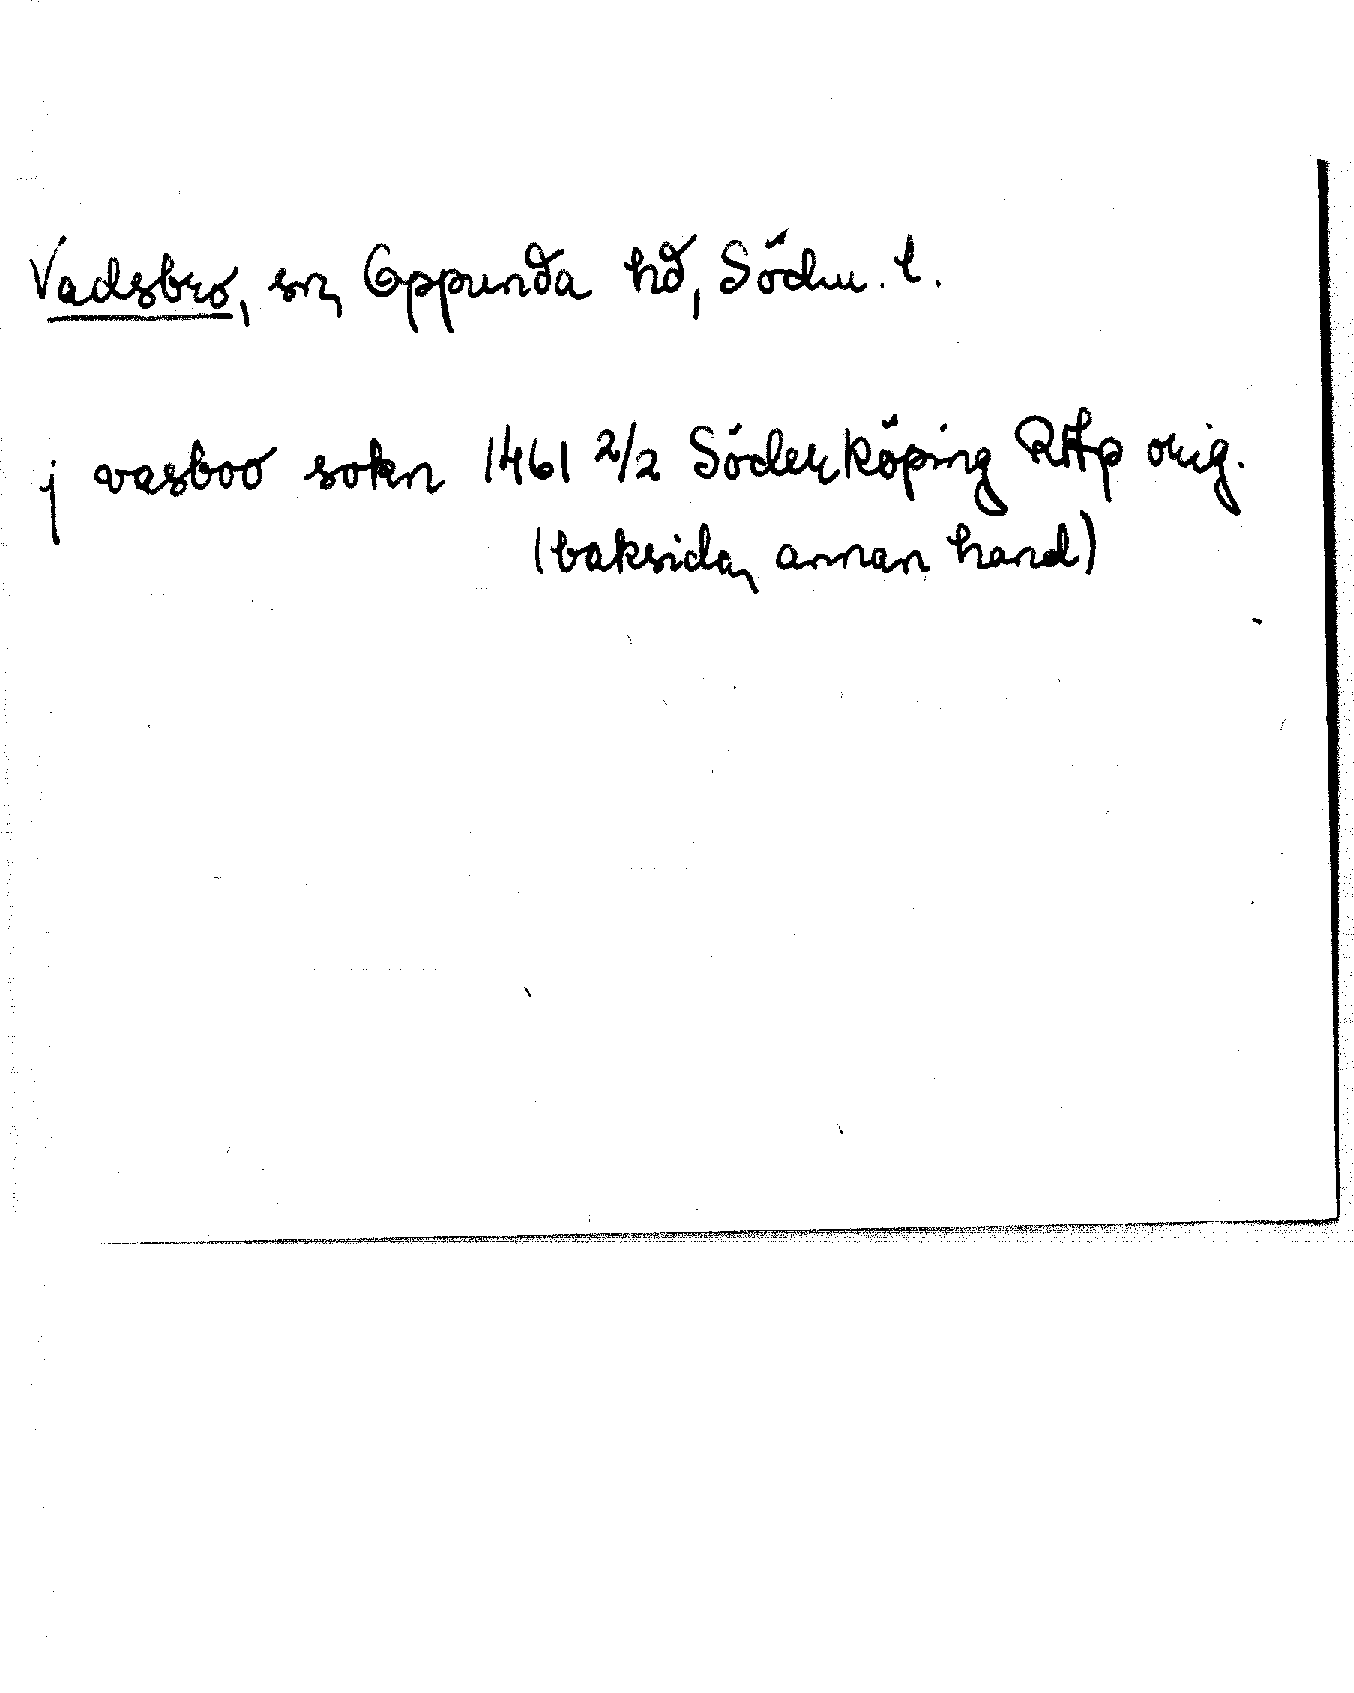 Vadsbro, sn, Oppunda hd, Södm. l.
j vasboo sokn 1461 2/2 Söderköping RAp orig.
(baksida, annan hand)